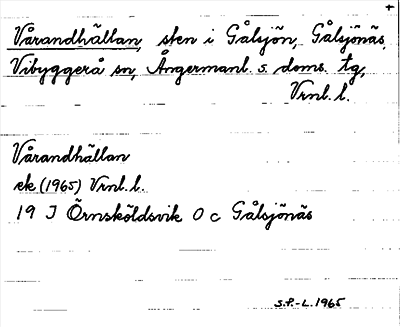 +
Vårandhällan, sten i Gålsjön, Gålsjönäs,
Vibyggerå sn, Ångermanl. s. doms. tg,
Vrnl. l.
Vårandhällan
ek (1965) Vrnl. l.
19 J Örnsköldsvik O c Gålsjönäs
S.P.-L. 1965